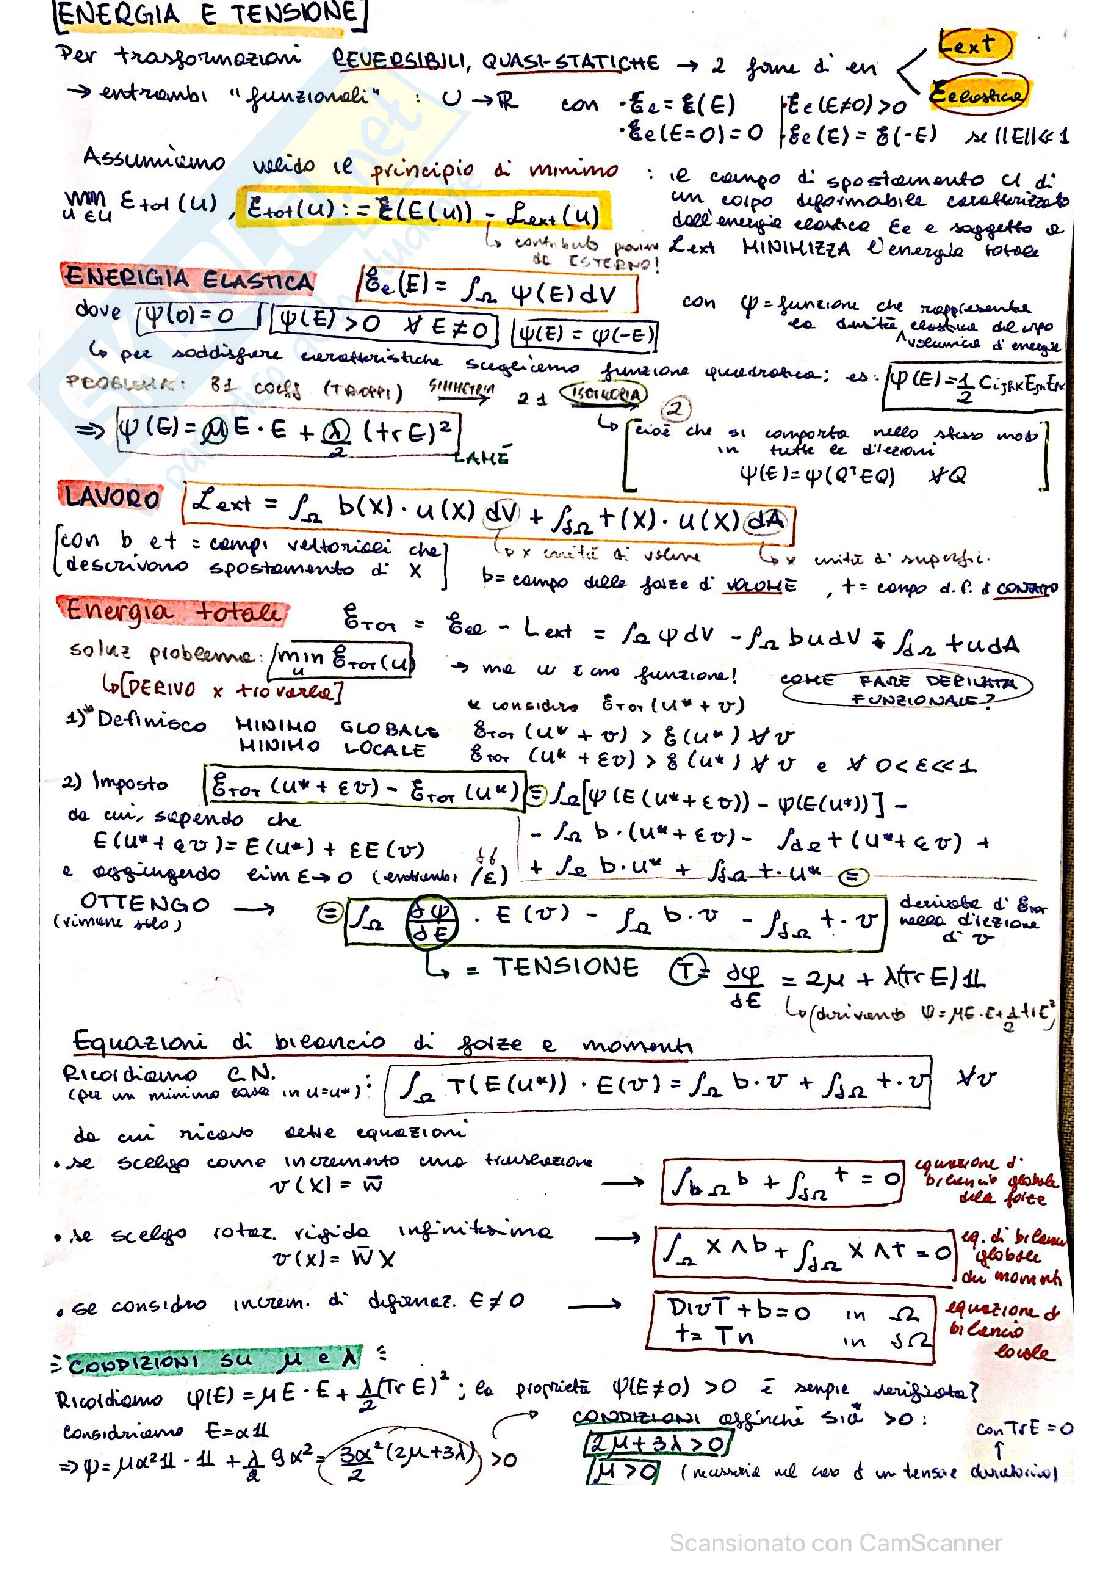 [ENERGIA E TENSIONE]
Per trasformazioni REVERSIBILI, QUASI-STATICHE → 2 forme di en < Lext
Eelastica
→ entrambi "funzionali" : U → ℝ con · Ee = E(E) | Ee(E≠0) > 0
· Ee(E=0) = 0 | Ee(E) = E(-E) se ||E|| ≪ 1
Assumiamo valido il principio di minimo : il campo di spostamento U di
un corpo deformabile caratterizzato
dall'energia elastica Ee e soggetto a
Lext MINIMIZZA l'energia totale
min u∈U Etot(u), Etot(u) := E(E(u)) - Lext(u)
↳ contributo
da ESTERNO!
ENERIGIA ELASTICA Ee(E) = ∫Ω ψ(E) dV
con ψ = funzione che rappresenta
la densità elastica del corpo
volumica d'energia
dove ψ(0) = 0 ψ(E) > 0 ∀ E ≠ 0 ψ(E) = ψ(-E)
↳ per soddisfare caratteristiche scegliamo funzione quadratica; es: ψ(E) = 1/2 Cijhk Eij Ehk
PROBLEMA: 81 coeff (TROPPI) SIMMETRIA → 21 ISOTROPIA → 2
↳ [cioè che si comporta nello stesso modo
in tutte le direzioni
ψ(E) = ψ(QᵀEQ) ∀Q]
⇒ ψ(E) = μ E · E + λ/2 (trE)²
LAMÉ
LAVORO Lext = ∫Ω b(x) · u(x) dV + ∫∂Ω t(x) · u(x) dA
↳ x unità di volume ↳ x unità di superfic.
[con b e t = campi vettoriali che
descrivono spostamento di X]
b = campo delle forze di VOLUME , t = campo d. f. d CONTATTO
Energia totale Etot = Eel - Lext = ∫Ω ψ dV - ∫Ω b u dV - ∫∂Ω t u dA
soluz problema: min u Etot(u) → ma u è una funzione! COME FARE DERIVATA
FUNZIONALE?
↳ [DERIVO x trovarla]
* considero Etot(u* + v)
1)* Definisco MINIMO GLOBALE Etot(u* + v) > E(u*) ∀ v
MINIMO LOCALE Etot(u* + εv) > E(u*) ∀ v e ∀ 0 < ε ≪ 1
2) Imposto Etot(u* + εv) - Etot(u*) = ∫Ω [ψ(E(u* + εv)) - ψ(E(u*))] -
- ∫Ω b · (u* + εv) - ∫∂Ω t (u* + εv) +
+ ∫Ω b · u* + ∫∂Ω t · u* =
da cui, sapendo che
E(u* + εv) = E(u*) + εE(v)
e aggiungendo lim ε→0 (entrambi /ε)
OTTENGO → = ∫Ω ∂ψ/∂E · E(v) - ∫Ω b · v - ∫∂Ω t · v
(rimane solo)
derivata di Etot
nella direzione
di v
↳ = TENSIONE T = ∂ψ/∂E = 2μ + λ(Tr E) 1
↳ (derivando ψ = μE·E + λ/2 trE²)
Equazioni di bilancio di forze e momenti
Ricordiamo C.N. : ∫Ω T(E(u*)) · E(v) = ∫Ω b · v + ∫∂Ω t · v ∀v
(per un minimo in u = u*)
da cui ricavo altre equazioni
• se scelgo come incremento una traslazione
v(x) = w̄ → ∫Ω b + ∫∂Ω t = 0
equazione di
bilancio globale
delle forze
• se scelgo rotaz. rigida infinitesima
v(x) = W̄ X → ∫Ω X ∧ b + ∫∂Ω X ∧ t = 0
eq. di bilancio
globale
dei momenti
• se considero increm. di deformaz. E ≠ 0 → DivT + b = 0 in Ω
t = Tn in ∂Ω
equazione di
bilancio
locale
CONDIZIONI SU μ e λ
Ricordiamo ψ(E) = μE · E + λ/2 (Tr E)² ; la proprietà ψ(E≠0) > 0 è sempre verificata?
consideriamo E = α1
⇒ ψ = μα² 1 · 1 + λ/2 9α² = 3α²/2 (2μ + 3λ) > 0
CONDIZIONI affinché sia > 0 :
2μ + 3λ > 0
μ > 0 (necessaria nel caso d un tensore deviatorico)
con TrE = 0
Scansionato con CamScanner